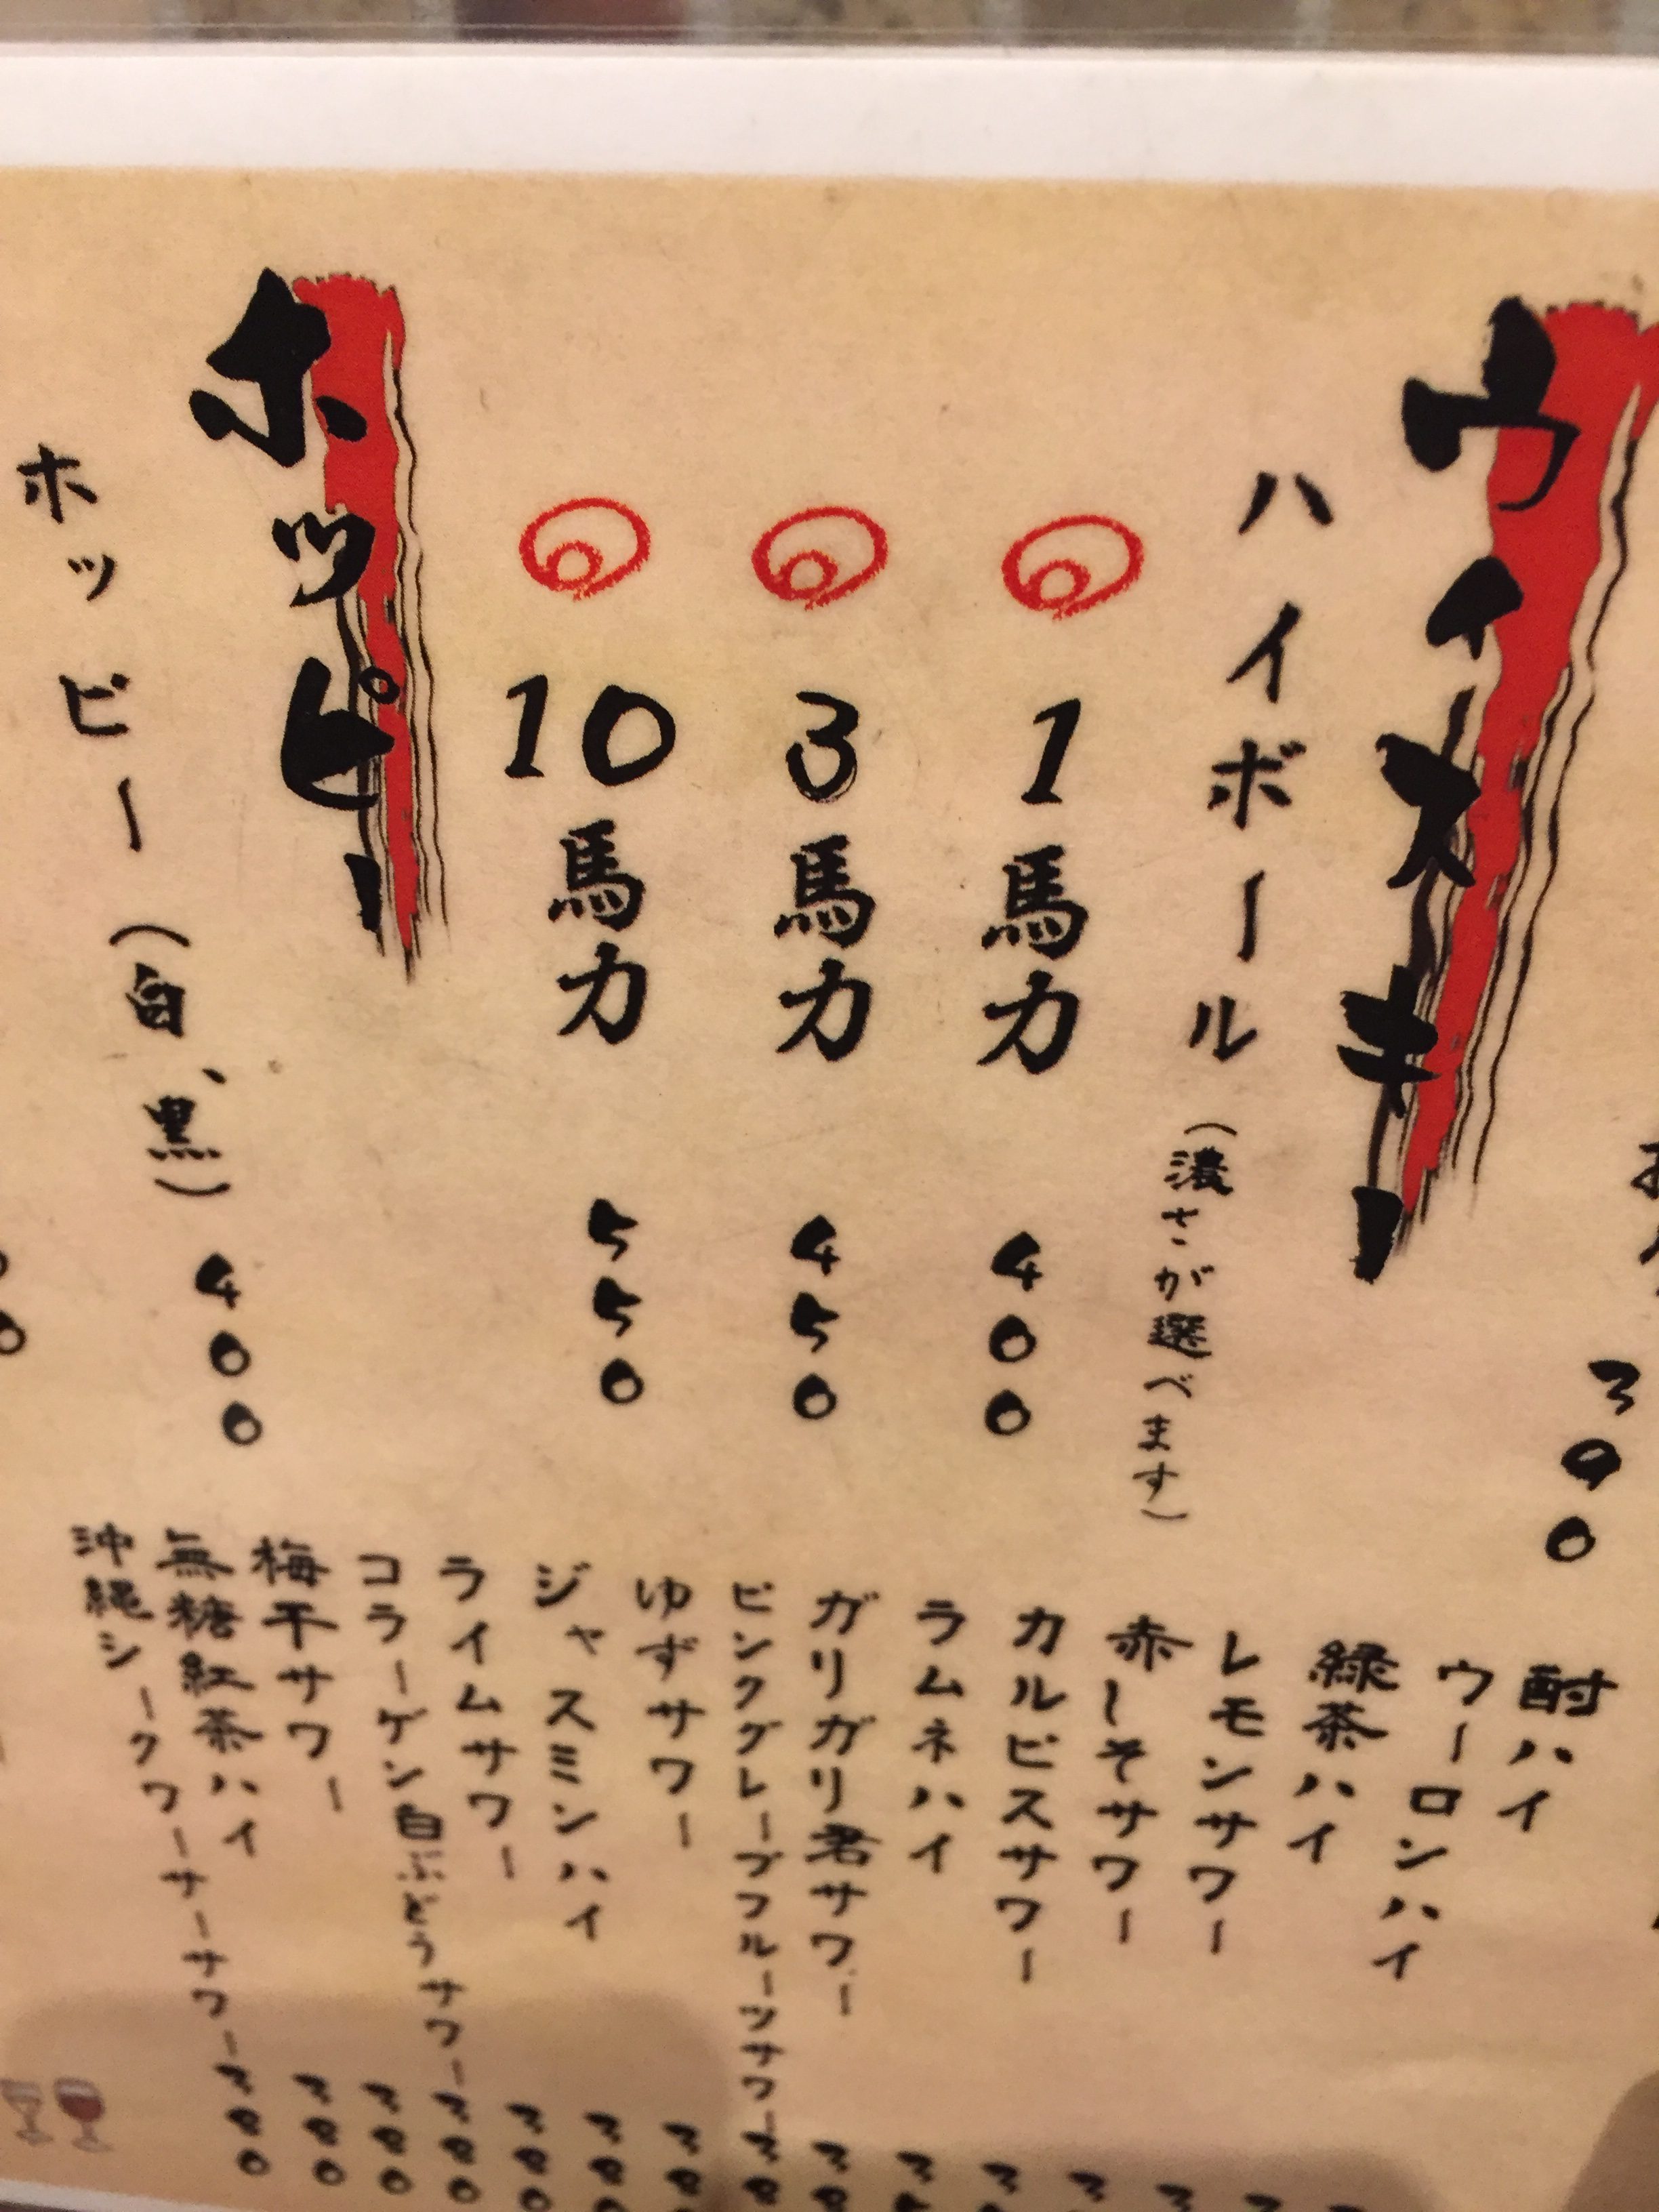 390
ウイスキー
ハイボール（濃さが選べます）
1馬力 400
3馬力 450
10馬力 550
ホッピー
ホッピー（白、黒）400
酎ハイ
ウーロンハイ
緑茶ハイ
レモンサワー
赤しそサワー
カルピスサワー
ラムネハイ
ガリガリ君サワー
ピンクグレープフルーツサワー
ゆずサワー
ジャスミンハイ 380
ライムサワー 380
コラーゲン白ぶどうサワー 380
梅干サワー 380
無糖紅茶ハイ 380
沖縄シークワーサーサワー 380